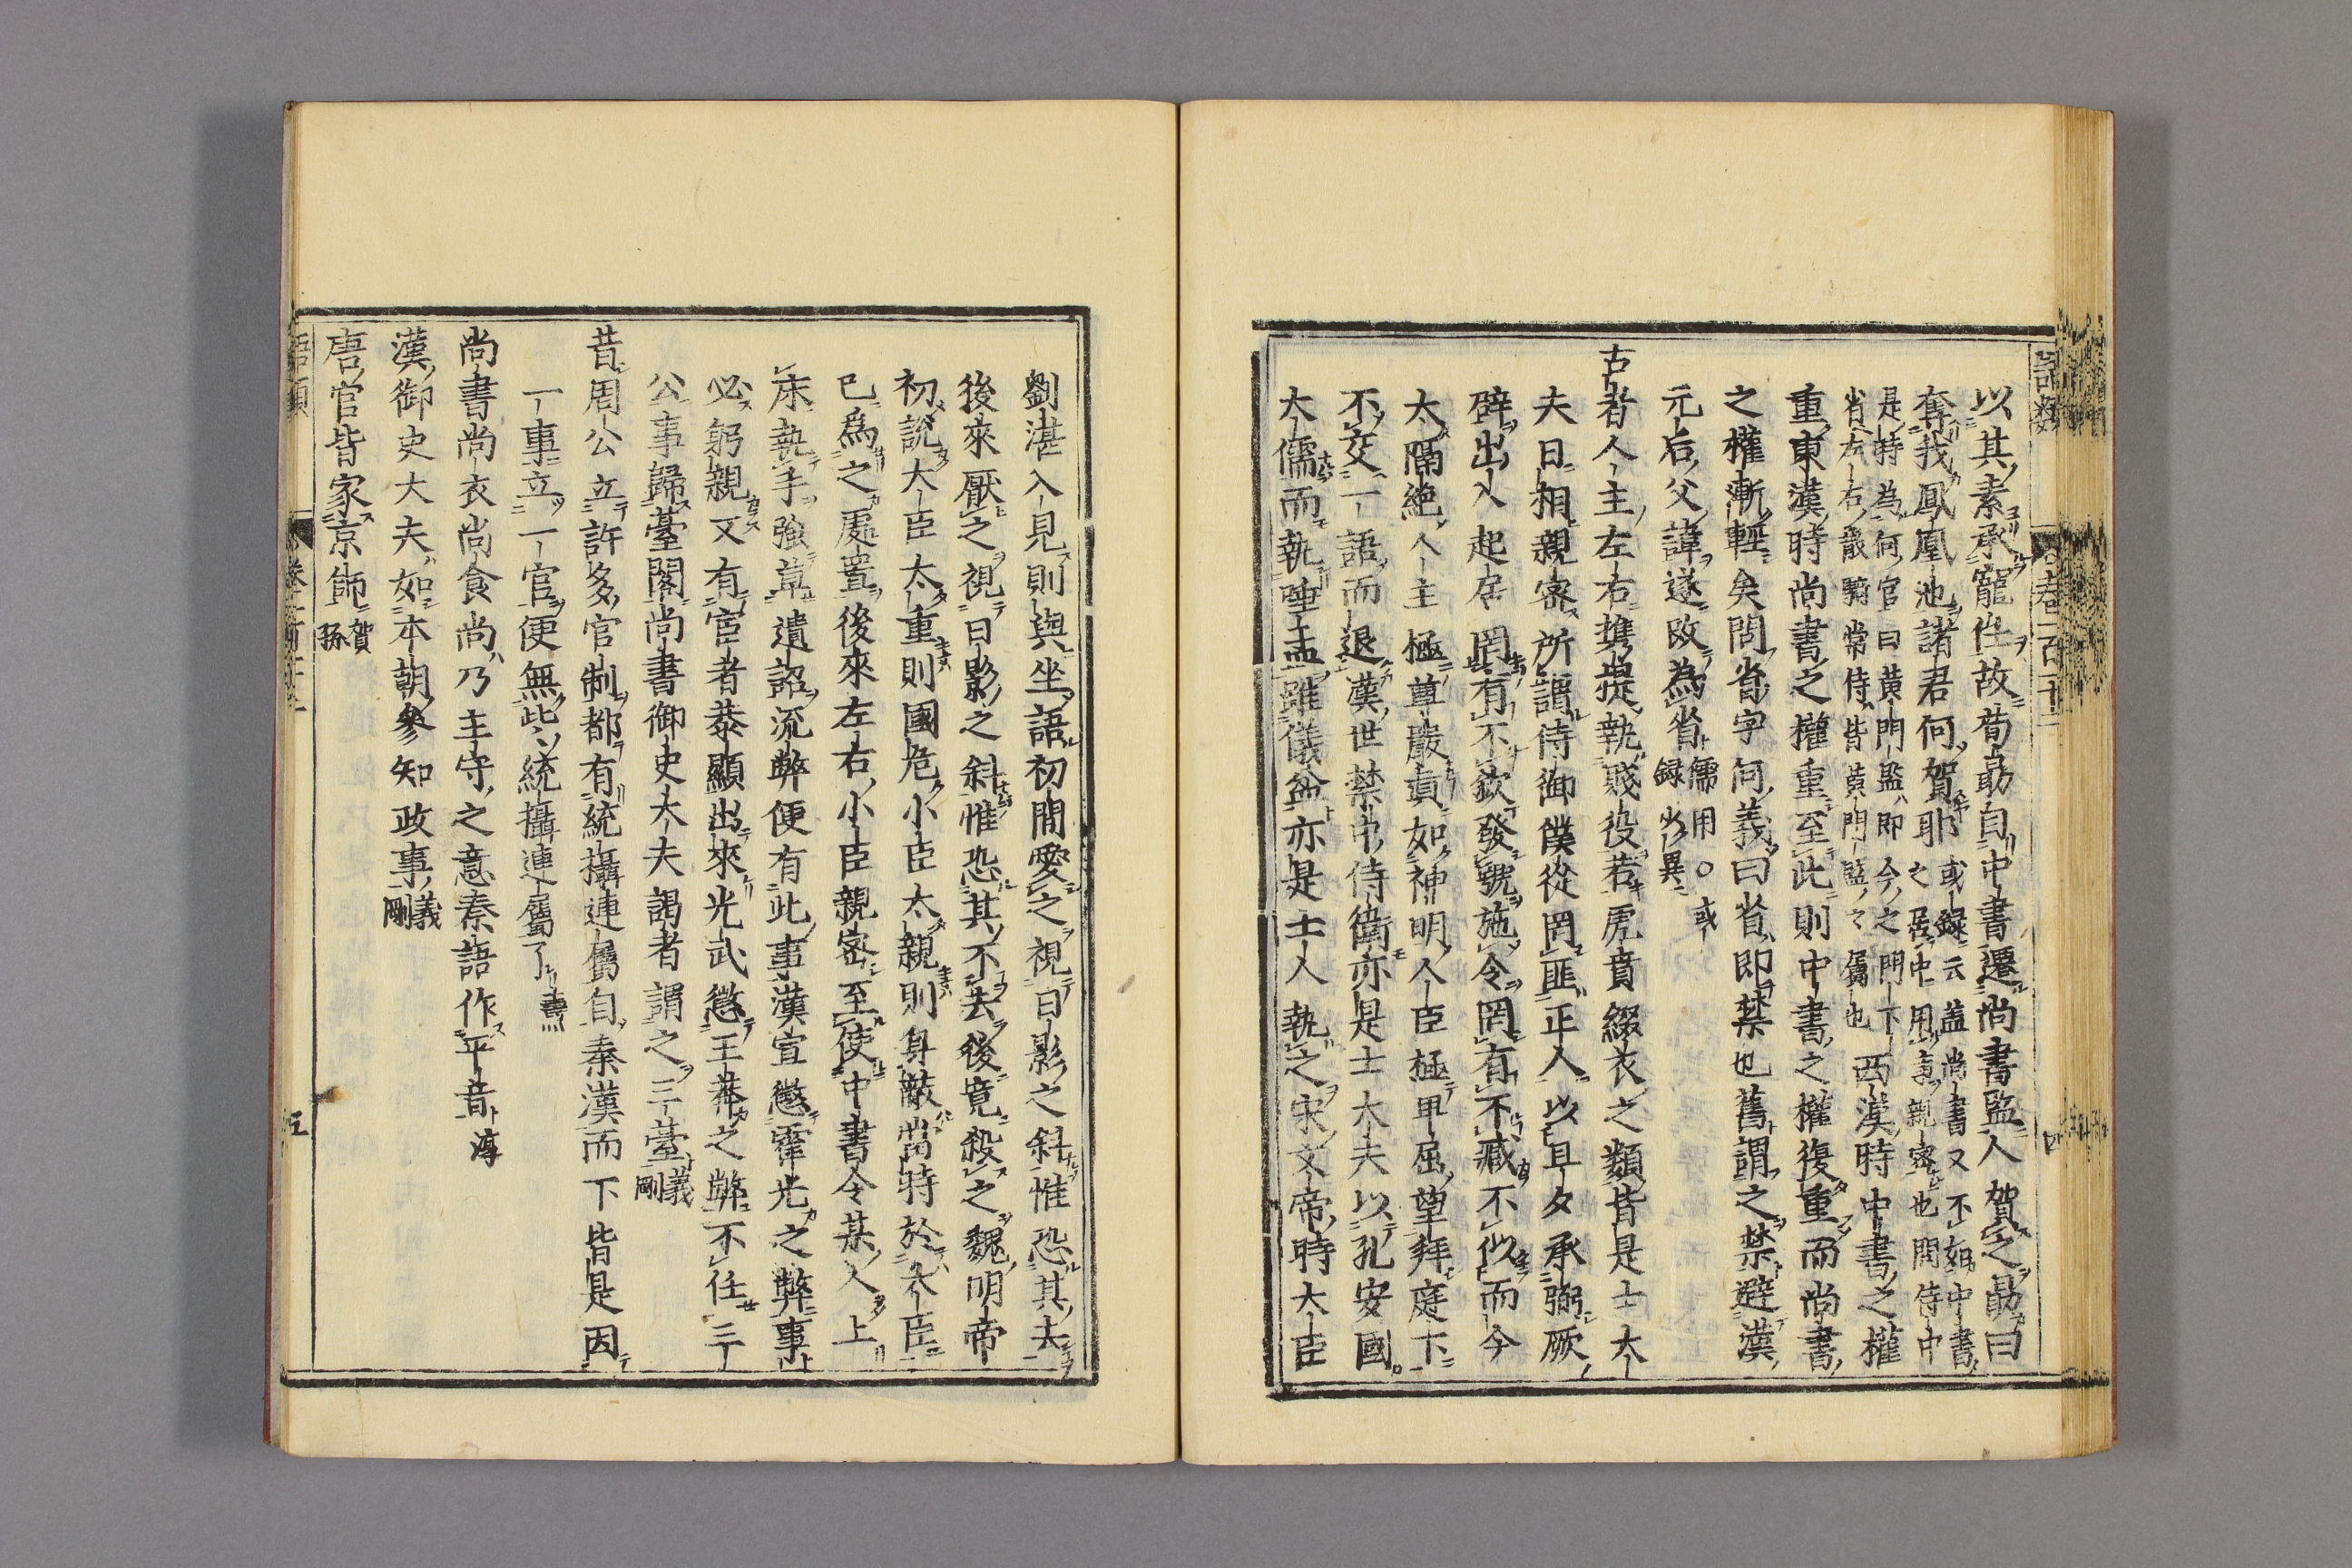 以其素承寵任故荀勗自中書遷尚書監人賀之勗曰
奪我鳳凰池諸君何賀耶或録云蓋尚書又不如中書
之居中用事親密也問侍中
是時為何官曰黄門監即今之門下
省左右散騎常侍皆黄門監之屬也西漢時中書之權
重東漢時尚書之權重至此則中書之權復重而尚書
之權漸輕矣問省字何義曰省即禁也舊謂之禁避漢
元后父諱遂改為省儒用○或
録少異
古者人主左右携提執賤役若虎賁綴衣之類皆是士大
夫日相親密所謂侍御僕從罔匪正人以旦夕承弼厥
辟出入起居罔有不欽發號施令罔有不臧不似而今
太隔絶人主極尊嚴真如神明人臣極卑屈望拜庭下
不交一語而退漢世禁中侍衛亦是士大夫以孔安國
大儒而執唾盂雖儀盆亦是士人執之宋文帝時大臣
劉湛入見則與坐語初間愛之視日影之斜惟恐其去
後來厭之視日影之斜惟恐其不去後竟殺之魏明帝
初説大臣太重則國危小臣太親則身蔽當時於大臣
已為之處置後來左右小臣親密至使中書令某人上
床執手強草遺詔流弊便有此事漢宣懲霍光之弊事
必躬親又有宦者恭顯出來光武懲王莽之弊不任三
公事歸臺閣尚書御史大夫謁者謂之三臺義剛
昔周公立許多官制都有統攝連屬自秦漢而下皆是因
一事立一官便無此統攝連屬了壽
尚書尚衣尚食尚乃主守之意秦語作平音淳
漢御史大夫如本朝參知政事義剛
唐官皆家京師賀孫